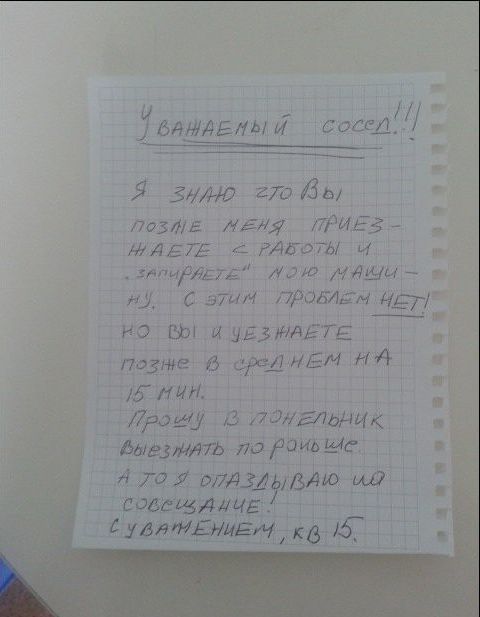 Уважаемый сосед!!!
Я знаю что Вы
позже меня приез-
жаете с работы и
"запираете" мою маши-
ну. С этим проблем НЕТ!
но вы и уезжаете
позже в среднем на
15 мин.
Прошу в понельник
выезжать по раньше.
А то я опаздываю на
совещание!
С уважением, кв 15.